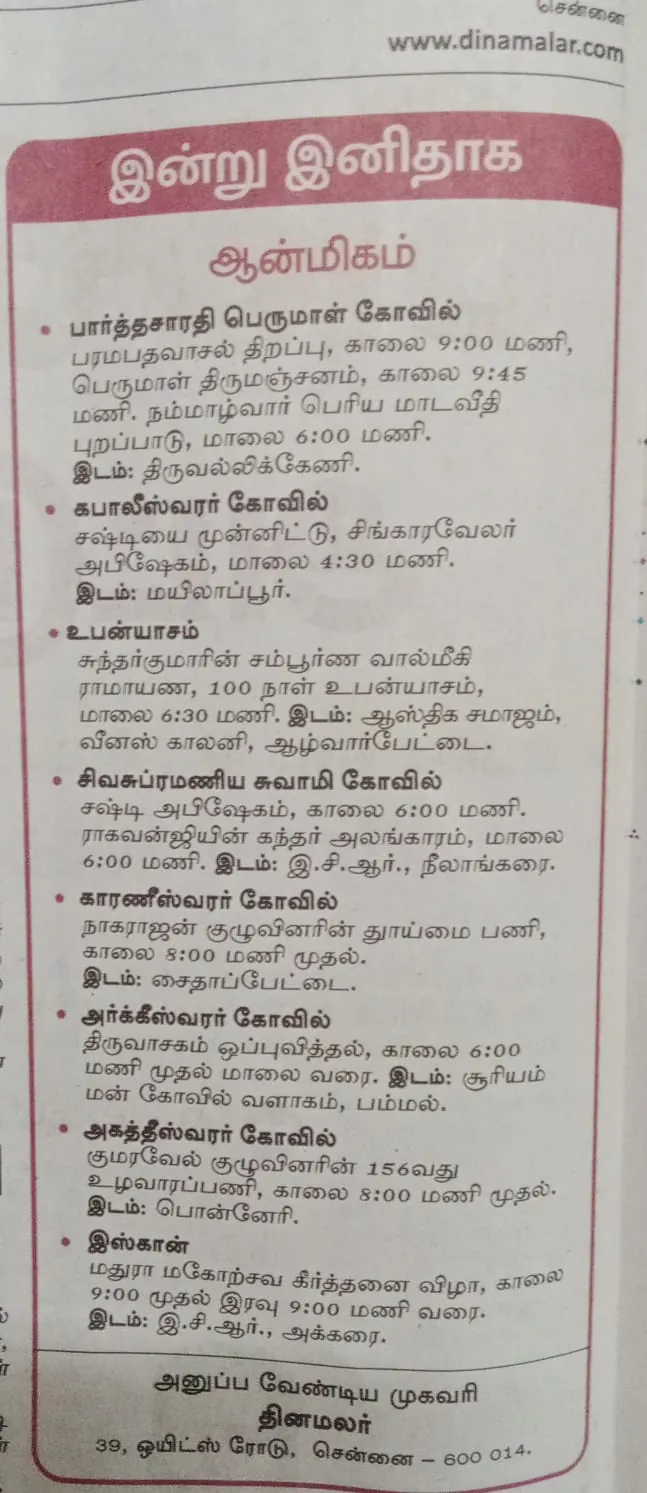 சென்னை
www.dinamalar.com
இன்று இனிதாக
ஆன்மிகம்
• பார்த்தசாரதி பெருமாள் கோவில்
பரமபதவாசல் திறப்பு, காலை 9:00 மணி,
பெருமாள் திருமஞ்சனம், காலை 9:45
மணி. நம்மாழ்வார் பெரிய மாடவீதி
புறப்பாடு, மாலை 6:00 மணி.
இடம்: திருவல்லிக்கேணி.
• கபாலீஸ்வரர் கோவில்
சஷ்டியை முன்னிட்டு, சிங்காரவேலர்
அபிஷேகம், மாலை 4:30 மணி.
இடம்: மயிலாப்பூர்.
• உபன்யாசம்
சுந்தர்குமாரின் சம்பூர்ண வால்மீகி
ராமாயண, 100 நாள் உபன்யாசம்,
மாலை 6:30 மணி. இடம்: ஆஸ்திக சமாஜம்,
வீனஸ் காலனி, ஆழ்வார்பேட்டை.
• சிவசுப்ரமணிய சுவாமி கோவில்
சஷ்டி அபிஷேகம், காலை 6:00 மணி.
ராகவன்ஜியின் கந்தர் அலங்காரம், மாலை
6:00 மணி. இடம்: இ.சி.ஆர்., நீலாங்கரை.
• காரணீஸ்வரர் கோவில்
நாகராஜன் குழுவினரின் துாய்மை பணி,
காலை 8:00 மணி முதல்.
இடம்: சைதாப்பேட்டை.
• அர்க்கீஸ்வரர் கோவில்
திருவாசகம் ஒப்புவித்தல், காலை 6:00
மணி முதல் மாலை வரை. இடம்: சூரியம்
மன் கோவில் வளாகம், பம்மல்.
• அகத்தீஸ்வரர் கோவில்
குமரவேல் குழுவினரின் 156வது
உழவாரப்பணி, காலை 8:00 மணி முதல்.
இடம்: பொன்னேரி.
• இஸ்கான்
மதுரா மகோற்சவ கீர்த்தனை விழா, காலை
9:00 முதல் இரவு 9:00 மணி வரை.
இடம்: இ.சி.ஆர்., அக்கரை.
அனுப்ப வேண்டிய முகவரி
தினமலர்
39, ஒயிட்ஸ் ரோடு, சென்னை – 600 014.